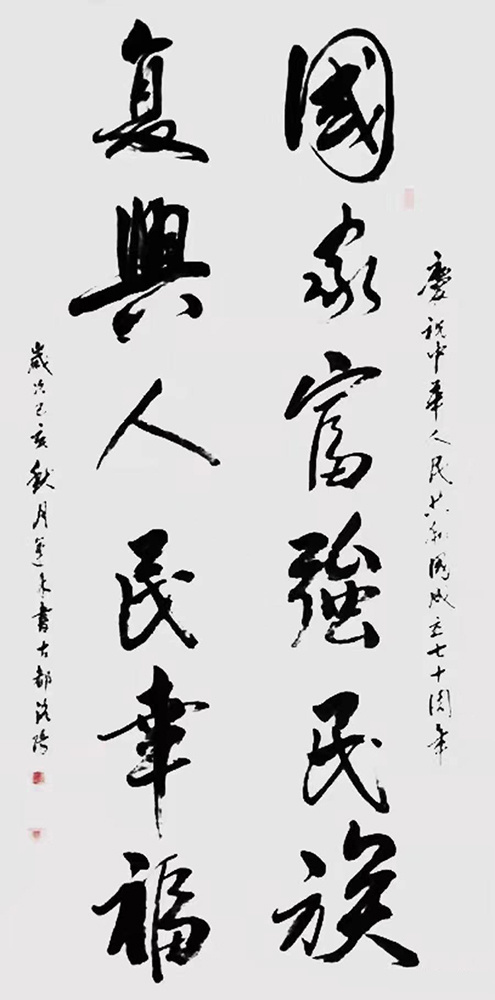 慶祝中華人民共和國成立七十周年
國家富強民族
复興人民幸福
歲次己亥秋月蓬来書古都洛陽